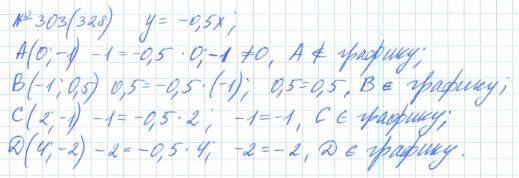 № 303(328) y = -0,5x;
A(0; -1) -1 = -0,5 · 0; -1 ≠ 0, A ∉ графику;
B(-1; 0,5) 0,5 = -0,5 · (-1); 0,5 = 0,5, B ∈ графику;
C(2; -1) -1 = -0,5 · 2; -1 = -1, C ∈ графику;
D(4; -2) -2 = -0,5 · 4; -2 = -2, D ∈ графику.